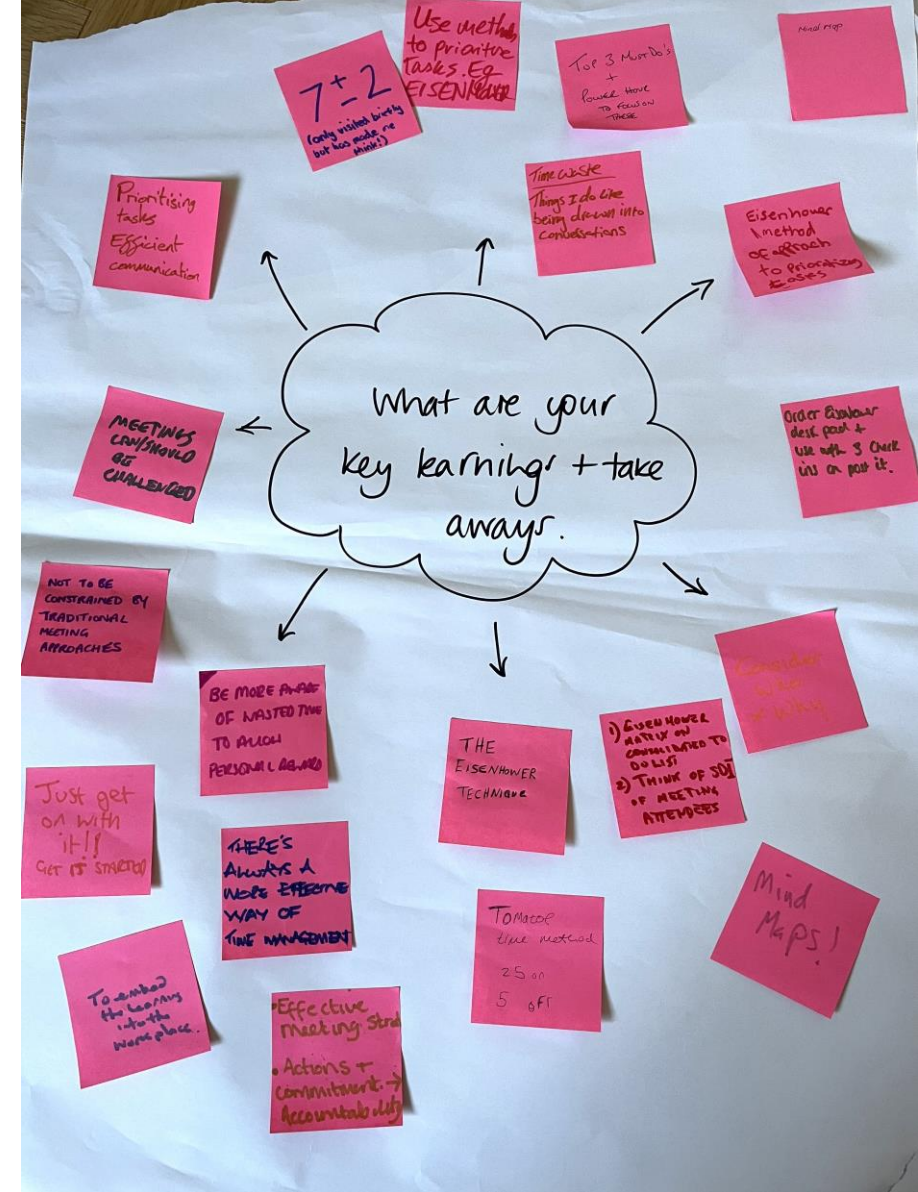 Use methods
to prioritise
Tasks. Eg
EISENHOWER
7 ± 2
(only visited briefly
but has made me
think!)
TOP 3 MUST DO'S
+
POWER HOUR
TO FOCUS ON
THESE
Mind Map
Prioritising
tasks
Efficient
communication
Time waste
Things I do like
being drawn into
conversations
Eisenhower
method
of approach
to prioritizing
tasks
What are your
key learnings + take
aways.
MEETINGS
CAN/SHOULD
BE
CHALLENGED
Order Eisenhower
desk pad +
use with 3 check
ins on post it.
NOT TO BE
CONSTRAINED BY
TRADITIONAL
MEETING
APPROACHES
BE MORE AWARE
OF WASTED TIME
TO ALLOW
PERSONAL REWARD
THE
EISENHOWER
TECHNIQUE
1) EISENHOWER
MATRIX ON
CONSOLIDATED TO
DO LIST
2) THINK OF SDI
OF MEETING
ATTENDEES
Consider
Why
Just get
on with
it!!
GET IT STARTED
THERE'S
ALWAYS A
MORE EFFECTIVE
WAY OF
TIME MANAGEMENT
Tomatoe
time method
25 on
5 off
Mind
Maps!
To embed
the learning
into the
workplace.
• Effective
meeting Strat
• Actions +
commitment →
Accountability